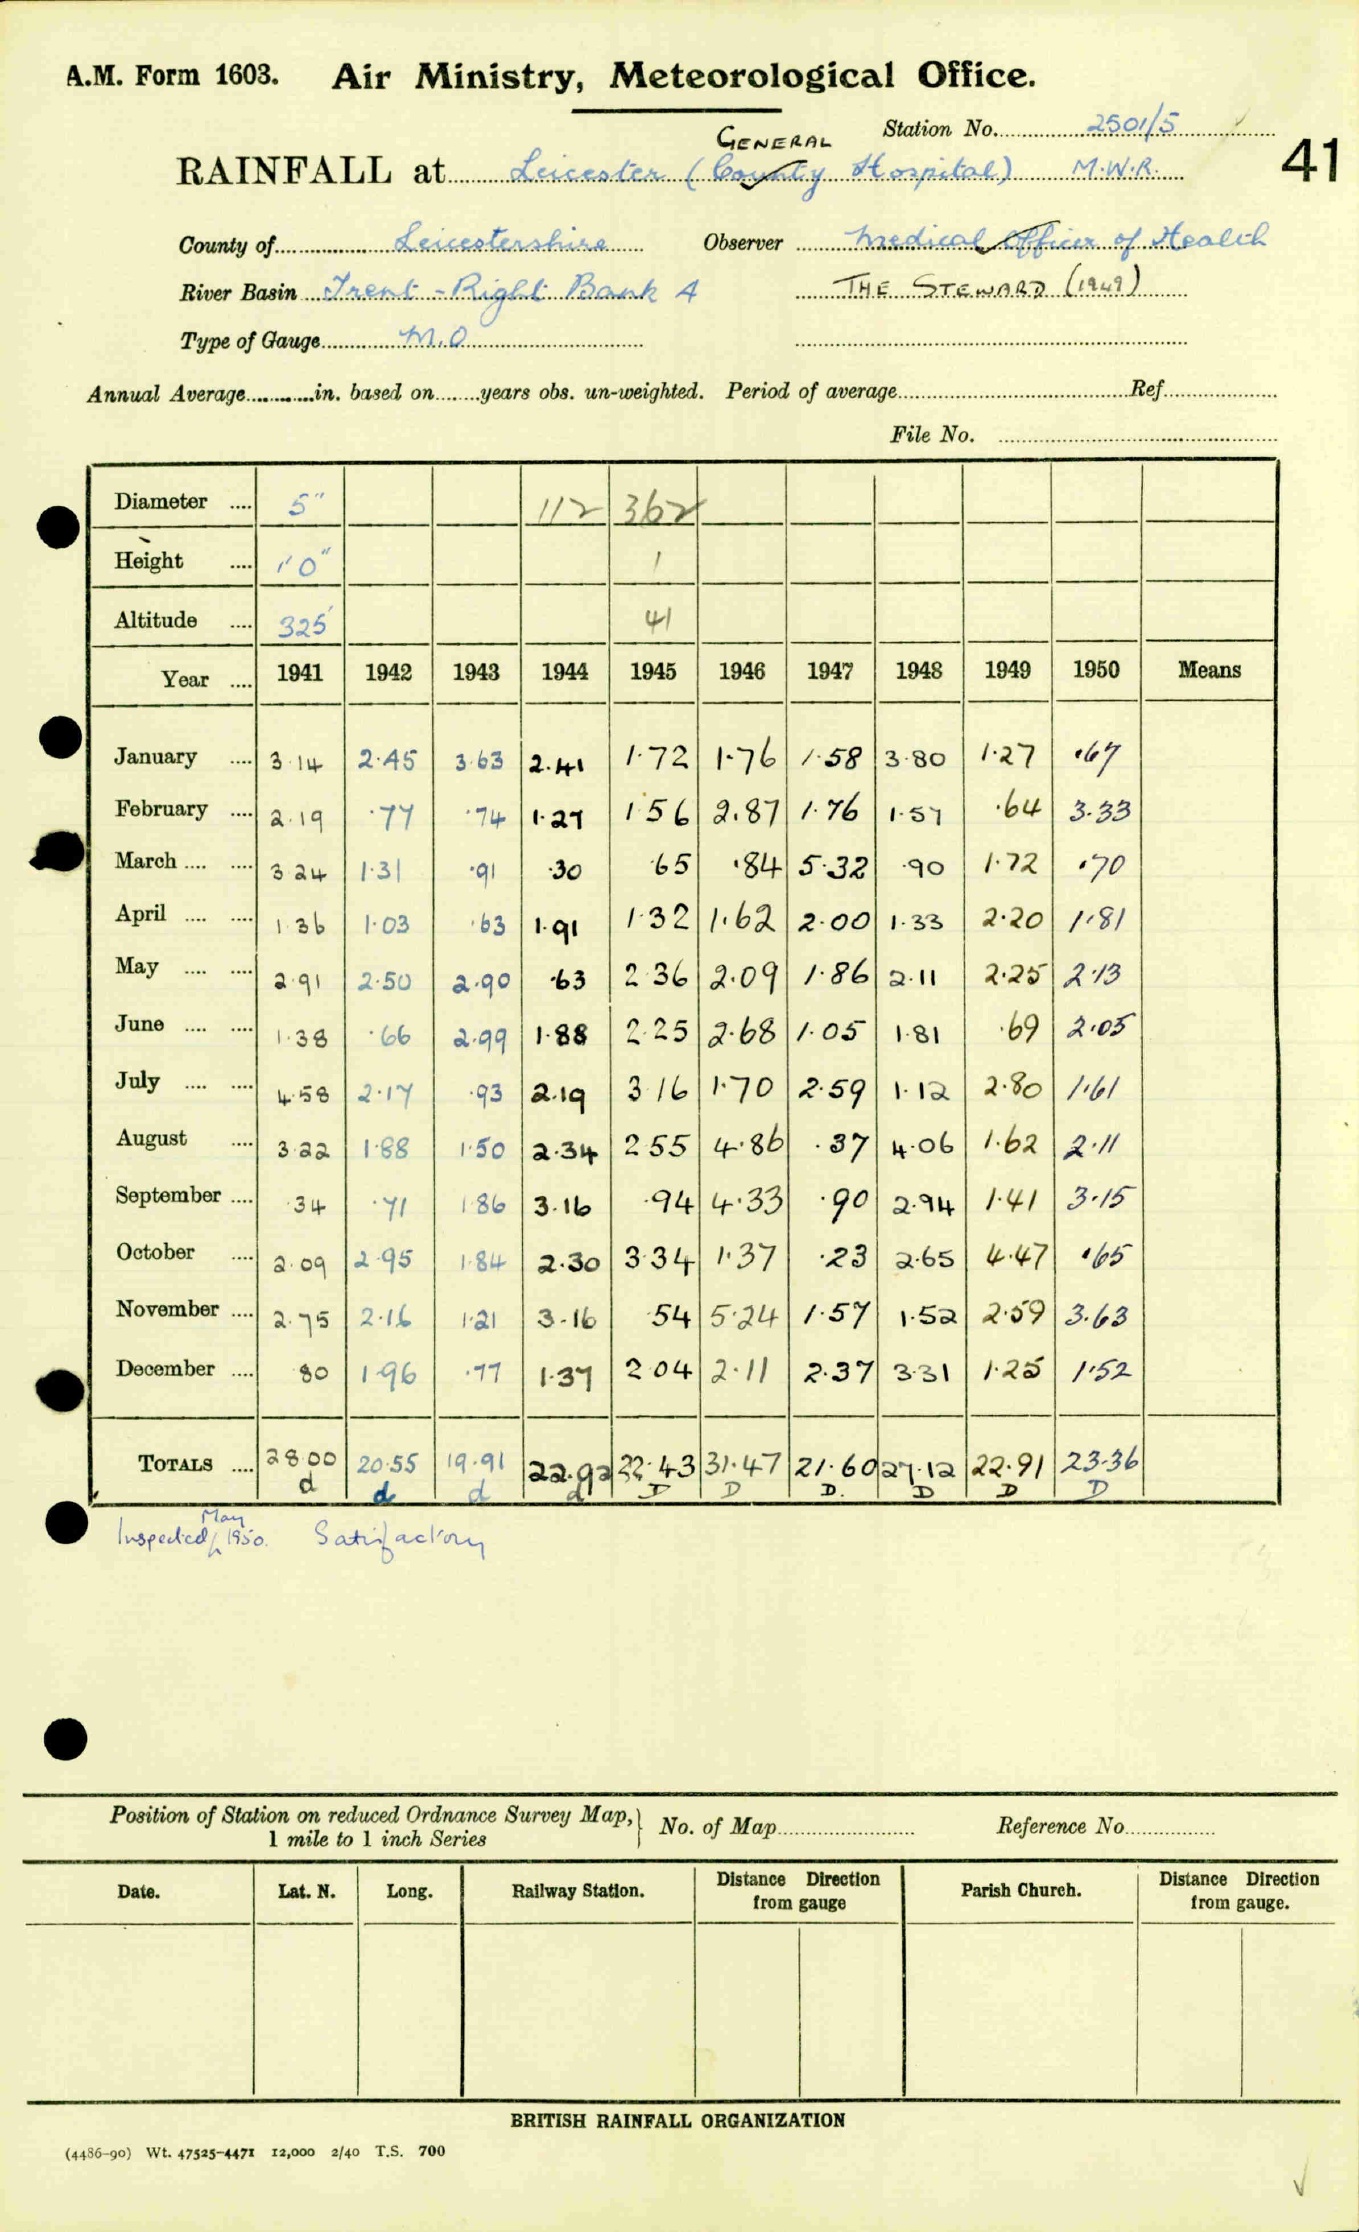 A.M. Form 1603. Air Ministry, Meteorological Office.
Station No. 2501/5
GENERAL
RAINFALL at Leicester (County Hospital) M.W.R. 41
County of Leicestershire Observer Medical Officer of Health
River Basin Trent - Right Bank 4 THE STEWARD (1949)
Type of Gauge M.O
Annual Average in. based on years obs. un-weighted. Period of average Ref
File No.
Diameter 5" 112 362
Height 1'0" 1
Altitude 325' 41
Year 1941 1942 1943 1944 1945 1946 1947 1948 1949 1950 Means
January 3.14 2.45 3.63 2.41 1.72 1.76 1.58 3.80 1.27 .67
February 2.19 .77 .74 1.27 1.56 2.87 1.76 1.57 .64 3.33
March 3.24 1.31 .91 .30 .65 .84 5.32 .90 1.72 .70
April 1.36 1.03 .63 1.91 1.32 1.62 2.00 1.33 2.20 1.81
May 2.91 2.50 2.90 .63 2.36 2.09 1.86 2.11 2.25 2.13
June 1.38 .66 2.99 1.88 2.25 2.68 1.05 1.81 .69 2.05
July 4.58 2.17 .93 2.19 3.16 1.70 2.59 1.12 2.80 1.61
August 3.22 1.88 1.50 2.34 2.55 4.86 .37 4.06 1.62 2.11
September .34 .71 1.86 3.16 .94 4.33 .90 2.94 1.41 3.15
October 2.09 2.95 1.84 2.30 3.34 1.37 .23 2.65 4.47 .65
November 2.75 2.16 1.21 3.16 .54 5.24 1.57 1.52 2.59 3.63
December .80 1.96 .77 1.37 2.04 2.11 2.37 3.31 1.25 1.52
TOTALS 28.00 20.55 19.91 22.92 22.43 31.47 21.60 27.12 22.91 23.36
d d d d D D D. D D D
May
Inspected 1950. Satisfactory
Position of Station on reduced Ordnance Survey Map, No. of Map Reference No
1 mile to 1 inch Series
Date. Lat. N. Long. Railway Station. Distance Direction from gauge Parish Church. Distance Direction from gauge.
BRITISH RAINFALL ORGANIZATION
(4486-90) Wt. 47525-4471 12,000 2/40 T.S. 700